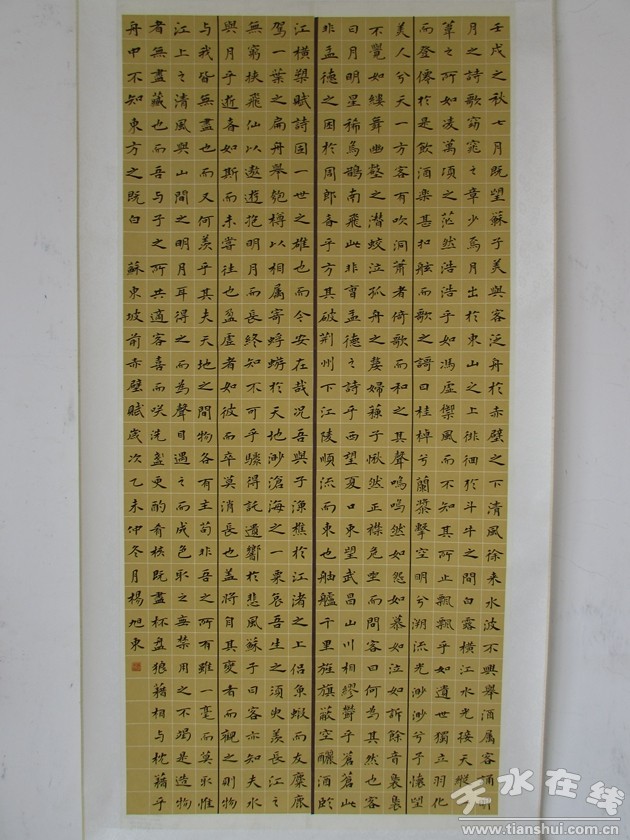 壬戌之秋七月既望蘇子美與客泛舟於赤壁之下清風徐来水波不興舉酒属客誦明
月之詩歌窈窕之章少焉月出於東山之上徘徊於斗牛之間白露横江水光接天縱一
葦之所如凌萬頃之茫然浩浩乎如馮虛禦風而不知其所止飄飄乎如遺世獨立羽化
而登僊於是飲酒樂甚扣舷而歌之謌曰桂棹兮蘭槳擊空明兮溯流光渺渺兮予懷望
美人兮天一方客有吹洞簫者倚歌而和之其聲嗚嗚然如怨如慕如泣如訴餘音裊裊
不覺如縷舞幽壑之潜蛟泣孤舟之嫠婦蘇子愀然正襟危坐而問客曰何為其然也客
曰月明星稀烏鵲南飛此非曹孟德之詩乎西望夏口東望武昌山川相繆鬱乎蒼蒼此
非孟德之困於周郎者乎方其破荆州下江陵順流而東也舳艫千里旌旗蔽空釃酒臨
江横槊賦詩固一世之雄也而今安在哉况吾與子漁樵於江渚之上侣魚蝦而友麋鹿
駕一葉之扁舟舉匏樽以相属寄蜉蝣於天地渺滄海之一粟哀吾生之須臾羡長江之
無窮挟飛仙以遨遊抱明月而長終知不可乎驟得託遺響於悲風蘇子曰客亦知夫水
與月乎逝者如斯而未嘗往也盈虛者如彼而卒莫消長也盖將自其變者而觀之則物
与我皆無盡也而又何羡乎其夫天地之間物各有主苟非吾之所有雖一毫而莫取惟
江上之清風與山間之明月耳得之而為聲目遇之而成色取之無禁用之不竭是造物
者無盡藏也而吾与子之所共適客喜而咲洗盞更酌肴核既盡杯盘狼藉相与枕藉乎
舟中不知東方之既白 蘇東坡前赤壁賦歲次乙未仲冬月楊旭東
天水在线
www.tianshui.com.cn